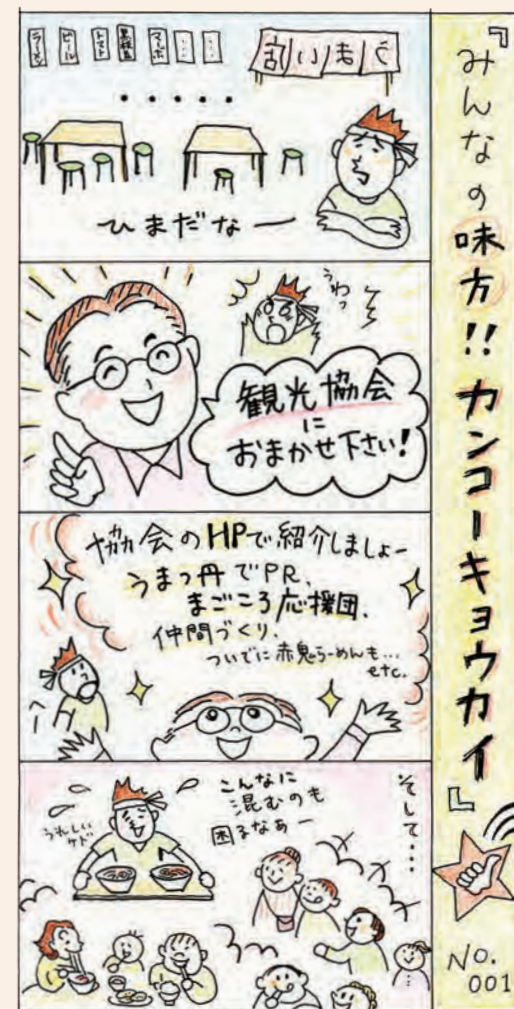 『みんなの味方!!カンコーキョウカイ』
No.
001
ラーメン
ビール
トマト
黒枝豆
マーボ
・・・
・・・
・・・・・
ひまだなー
うわっ
観光協会
に
おまかせ下さい!
協会のHPで紹介しましょー
うまっ丹でPR、
まごころ応援団、
仲間づくり、
ついでに赤鬼らーめんも…
etc.
へー
そして・・・
こんなに
混むのも
困るなあー
うれしい
ケド